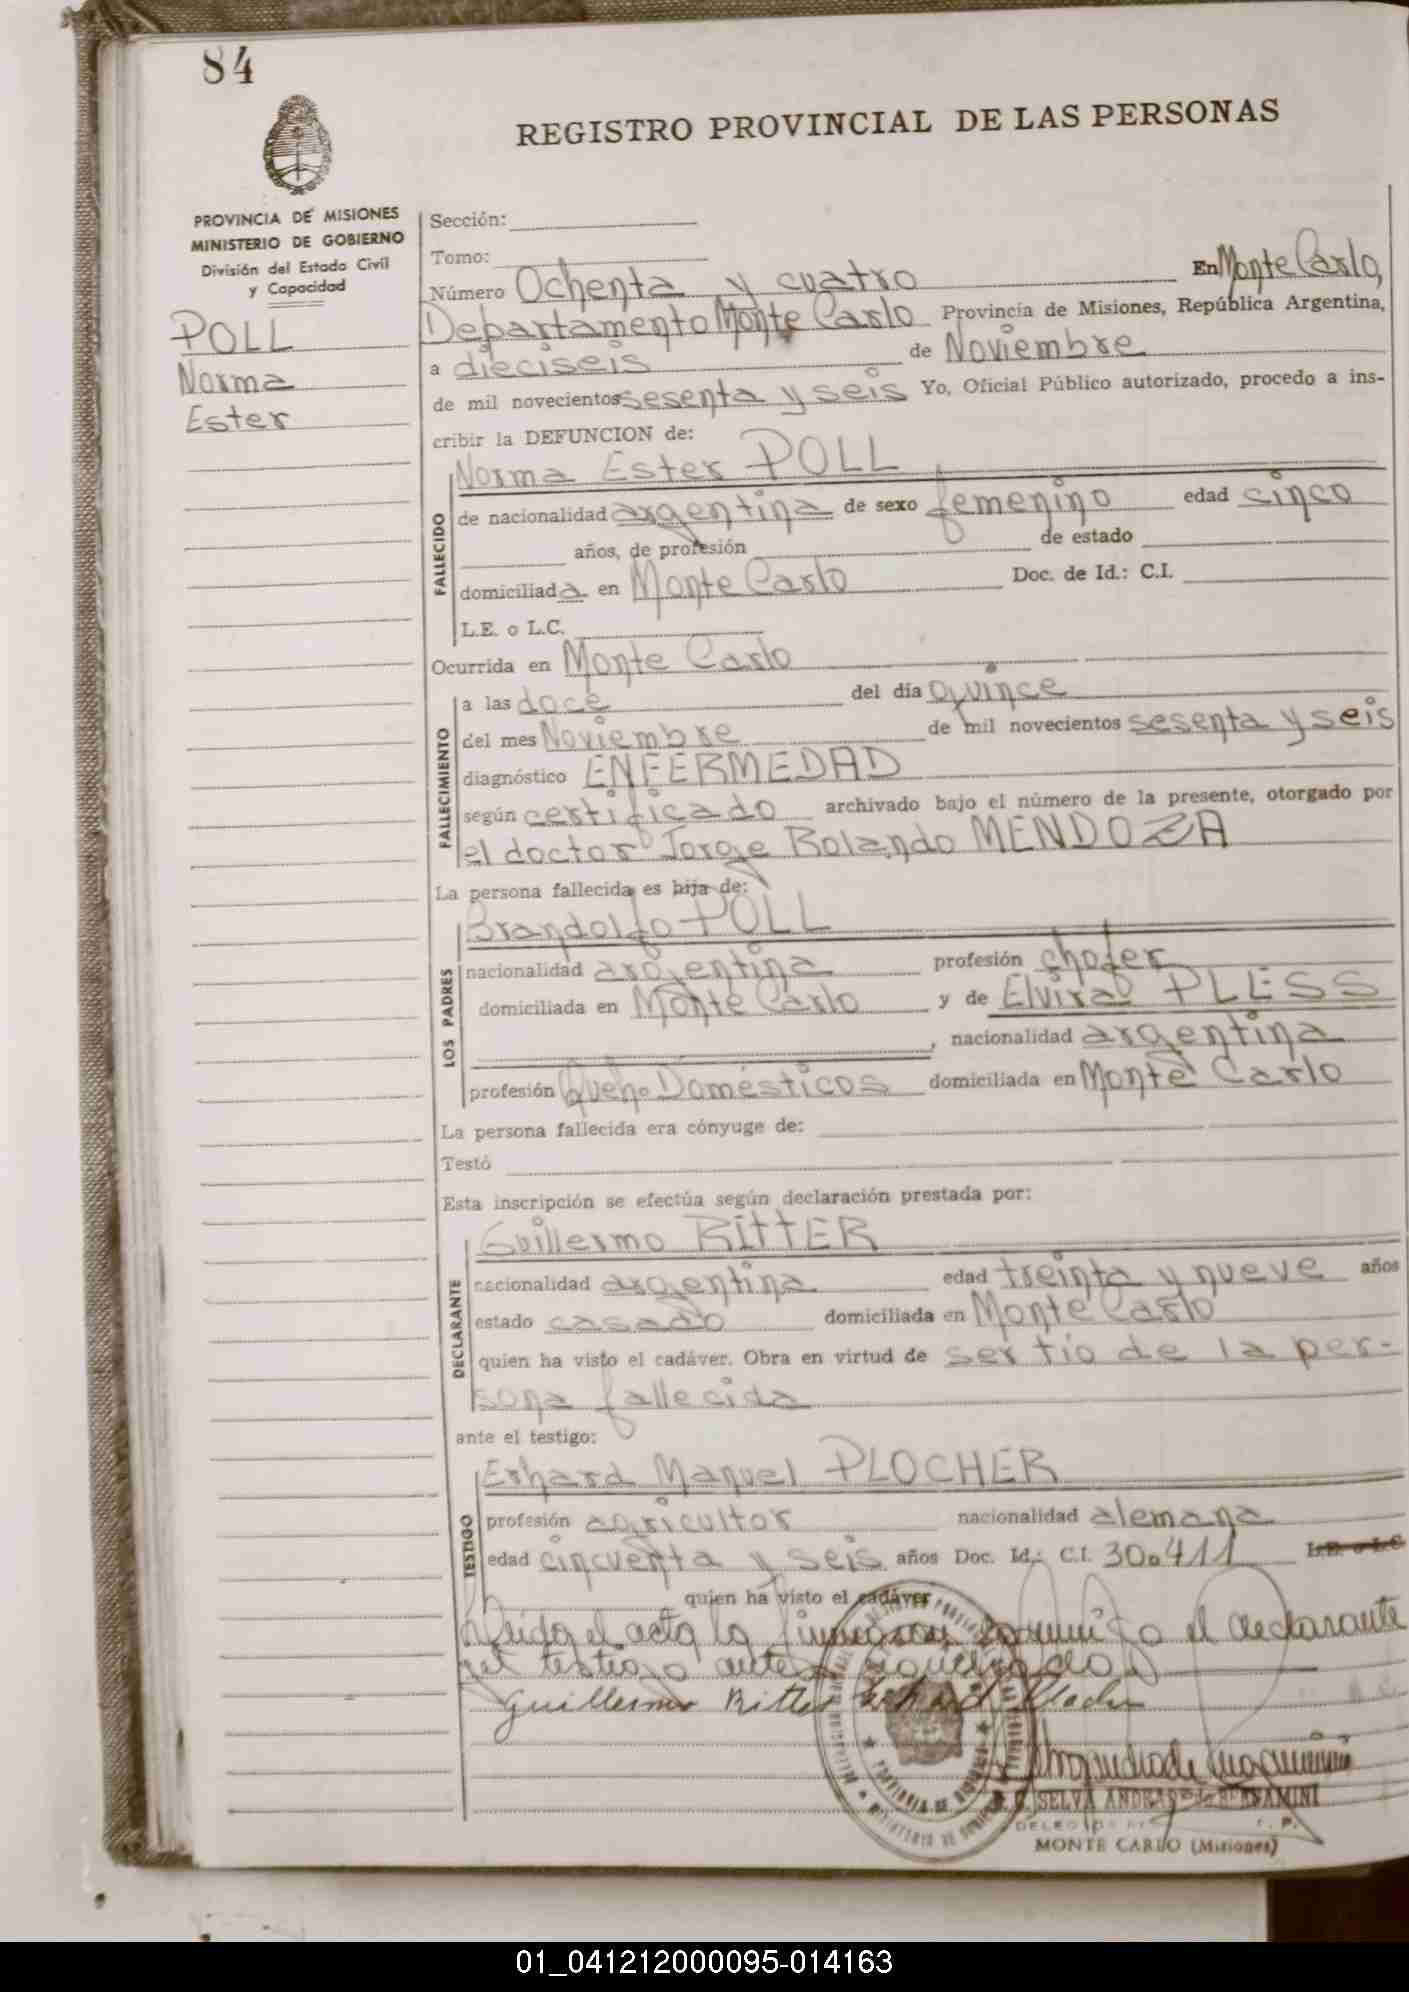 84
REGISTRO PROVINCIAL DE LAS PERSONAS
PROVINCIA DE MISIONES
MINISTERIO DE GOBIERNO
División del Estado Civil
y Capacidad
POLL
Norma
Ester
Sección:
Tomo:
Número Ochenta y cuatro En Monte Carlo,
Departamento Monte Carlo Provincia de Misiones, República Argentina,
a dieciseis de Noviembre
de mil novecientos sesenta y seis Yo, Oficial Público autorizado, procedo a ins-
cribir la DEFUNCION de:
FALLECIDO
Norma Ester POLL
de nacionalidad argentina de sexo femenino edad cinco
años, de profesión de estado
domiciliada en Monte Carlo Doc. de Id.: C.I.
L.E. o L.C.
Ocurrida en Monte Carlo
FALLECIMIENTO
a las doce del día quince
del mes Noviembre de mil novecientos sesenta y seis
diagnóstico ENFERMEDAD
según certificado archivado bajo el número de la presente, otorgado por
el doctor Jorge Rolando MENDOZA
La persona fallecida es hija de:
LOS PADRES
Brandolfo POLL
nacionalidad argentina profesión chofer
domiciliada en Monte Carlo y de Elvira PLESS
, nacionalidad argentina
profesión Queh. Domésticos domiciliada en Monte Carlo
La persona fallecida era cónyuge de:
Testó
Esta inscripción se efectúa según declaración prestada por:
DECLARANTE
Guillermo RITTER
nacionalidad argentina edad treinta y nueve años
estado casado domiciliada en Monte Carlo
quien ha visto el cadáver. Obra en virtud de ser tío de la per-
sona fallecida
ante el testigo:
TESTIGO
Erhard Manuel PLOCHER
profesión agricultor nacionalidad alemana
edad cincuenta y seis años Doc. Id.: C.I. 300.411 L.E. o L.C
quien ha visto el cadáver
Leida el acta la firman conmigo el declarante
y el testigo antes
Guillermo Ritter Erhard Plocher
PROVINCIA DE MISIONES
SELVA ANDRADE de
MONTE CARLO (Misiones)
01_041212000095-014163